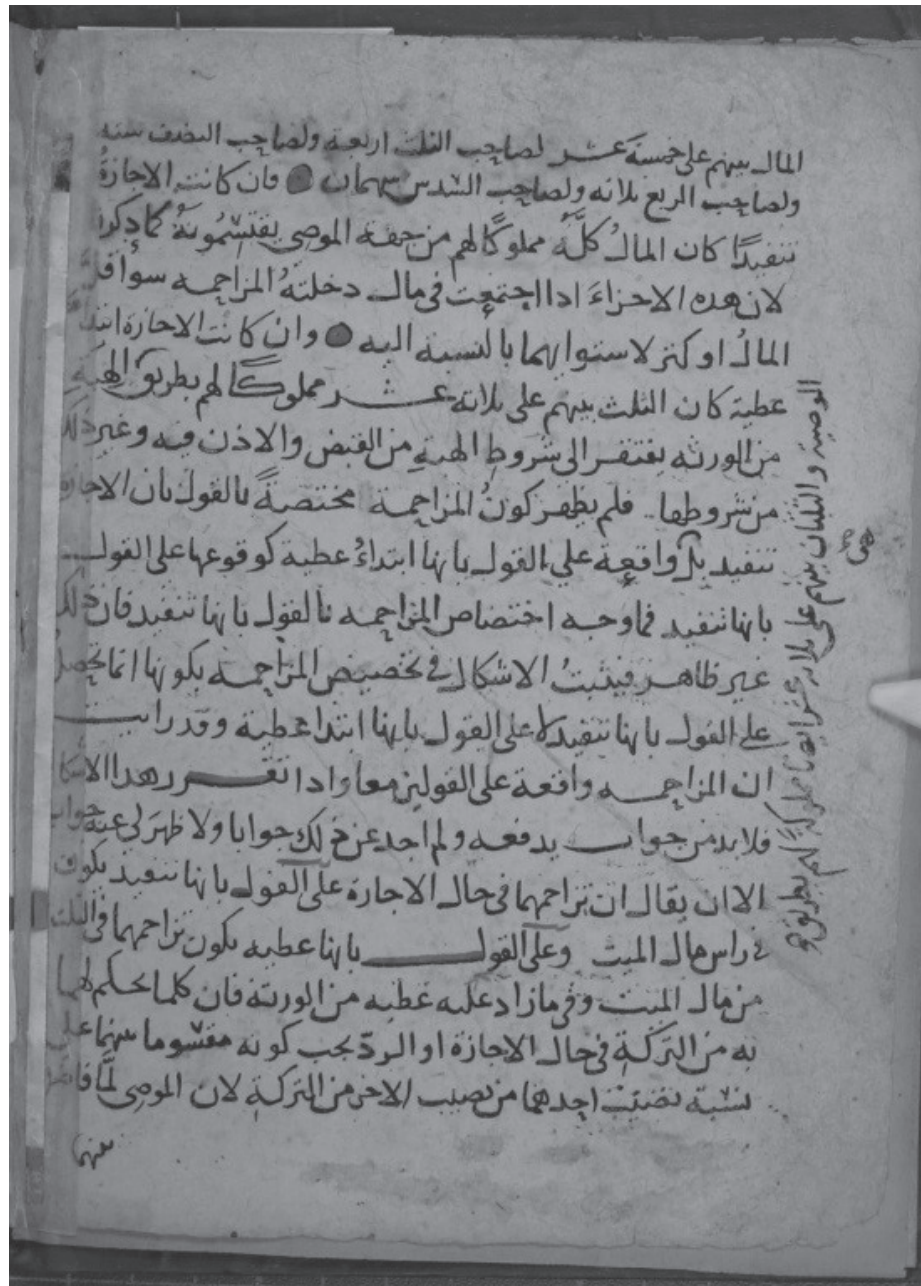 المال بينهم على خمسة عشر لصاحب الثلث اربعة ولصاحب النصف سته
ولصاحب الربع ثلاثه ولصاحب السدس سهمان فان كانت الاجازةُ
تنفيذًا كان المالُ كلَّهُ مملوكًا لهم من جهة الموصى يقتسمُونهُ كما ذكرنا
لان هذه الاجزاءَ اذا اجتمعت في مال دخلتهُ المزاحمه سوآ قل
المالُ او كثر لاستوايهما بالنسبة اليه وان كانت الاجازة ابتدا
عطية كان الثلث بينهم على ثلاثه عشر مملوكًا لهم بطريق الهبةِ
من الورثه يفتقر الى شروطِ الهبةِ من القبض والاذن فيه وغير ذلك
من شروطها فلم يظهر كونُ المزاحمة مختصةً بالقول بان الاجازة
تنفيذ بل واقعة على القول بانها ابتداءُ عطية كوقوعها على القول
بانها تنفيذ فما وجه اختصاص المزاحمه بالقول بانها تنفيذ فان ذلك
غير ظاهر فيثبتُ الاشكال في تخصيص المزاحمة بكونها انما يحصل
على القول بانها تنفيذ لا على القول بانها ابتدا عطية وقد رايت
ان المزاحمه واقعة على القولين معا واذا تقرر هذا الاشكا
فلا بد من جواب يدفعه ولم اجد عن ذلك جوابا ولا ظهرَ لي عنه جواب
الا ان يقال ان تزاحمهما في حال الاجازة على القول بانها تنفيذ يكون
في راس مال الميت وعلى القول بانها عطيه يكون تزاحمهما في الثلث
من مال الميت وفي ما زاد عليه عطيه من الورثة فان كلما يحكم لهما
به من التركةِ في حال الاجازة او الردّ يجب كونه مقسوما بينهما على
نسبة نصيب احدهما من نصيب الاخر من التركةِ لان الموصى لمَّا
بينهما
الوصية والثلثان بينهم على ثلاثة عشر ايضا مملوكًا لهم بطريق